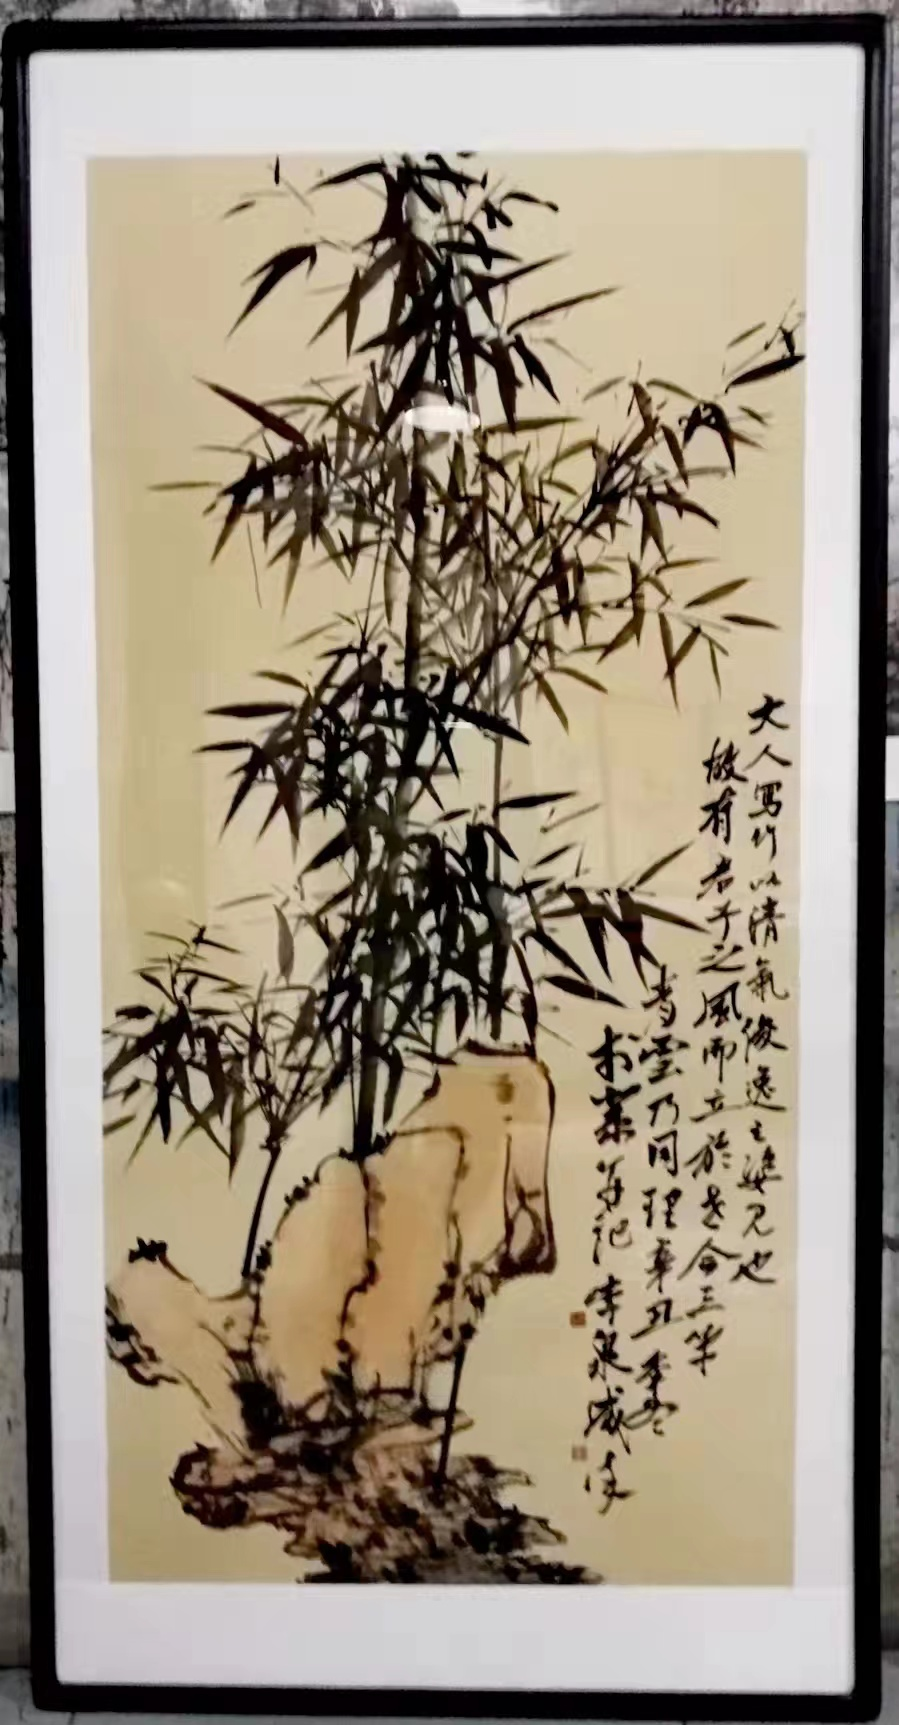 大人寫竹以清氣俊逸之姿見也
故有君子之風而立於世今三半
者雲乃同理辛丑季冬
於 並記 李泉成